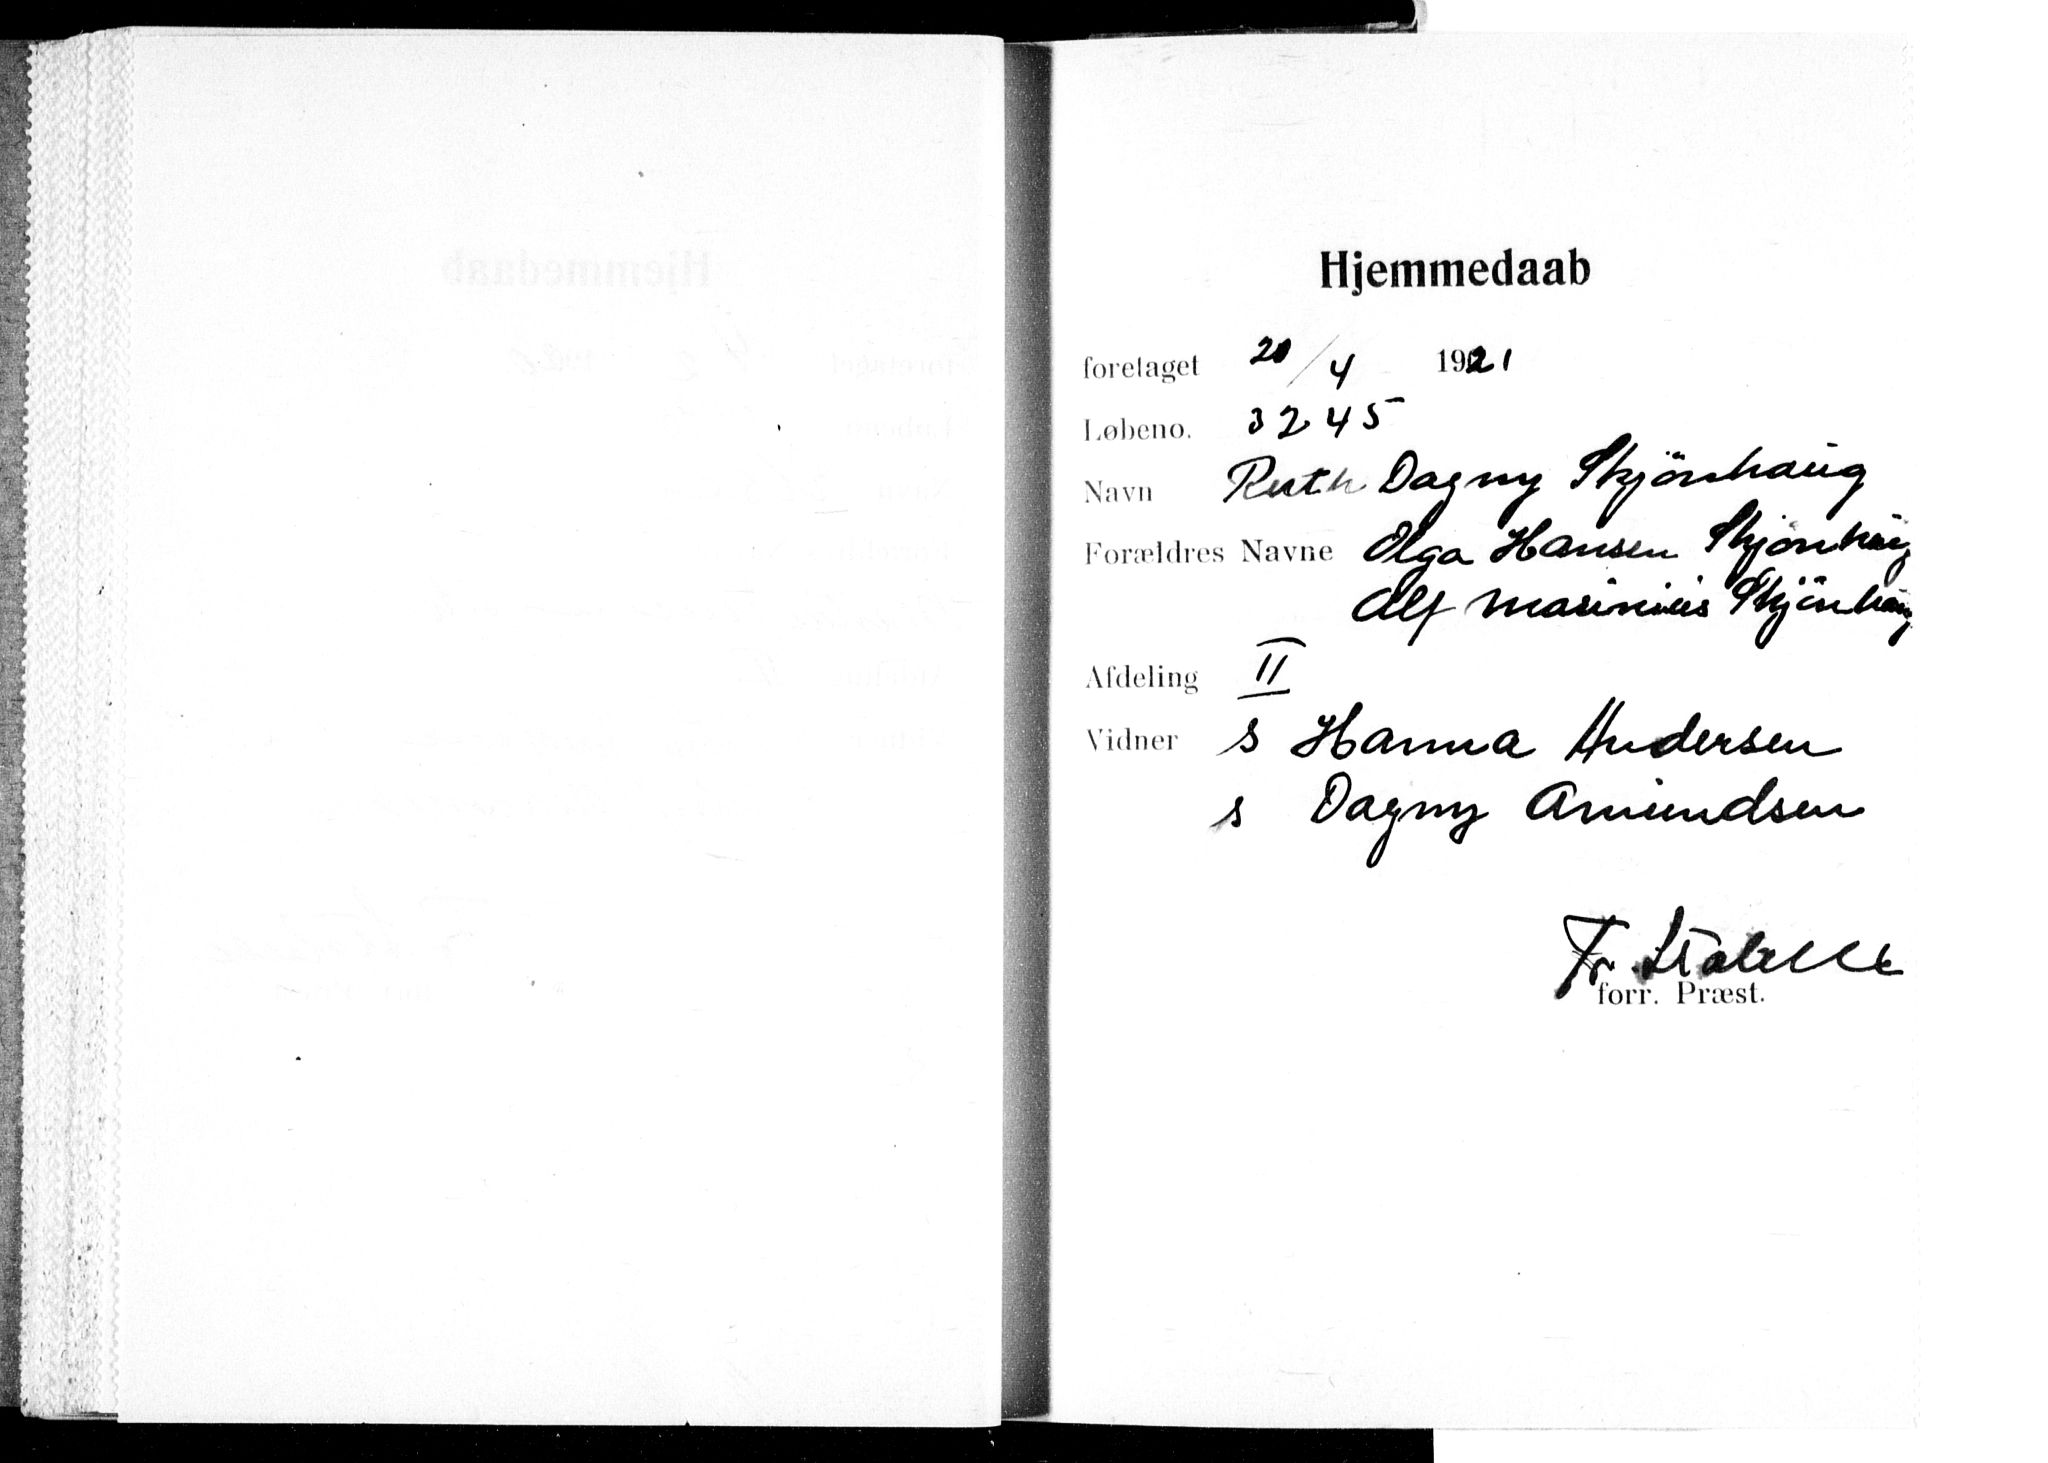 Hjemmedaab
foretaget 20/4 1921
Løbeno. 3245
Navn Ruth Dagny Skjönhaug
Forældres Navne Olga Hansen Skjönhaug
Alf Marinius Skjönhaug
Afdeling II
Vidner s Hanna Andersen
s Dagny Amundsen
Fr.
forr. Præst.